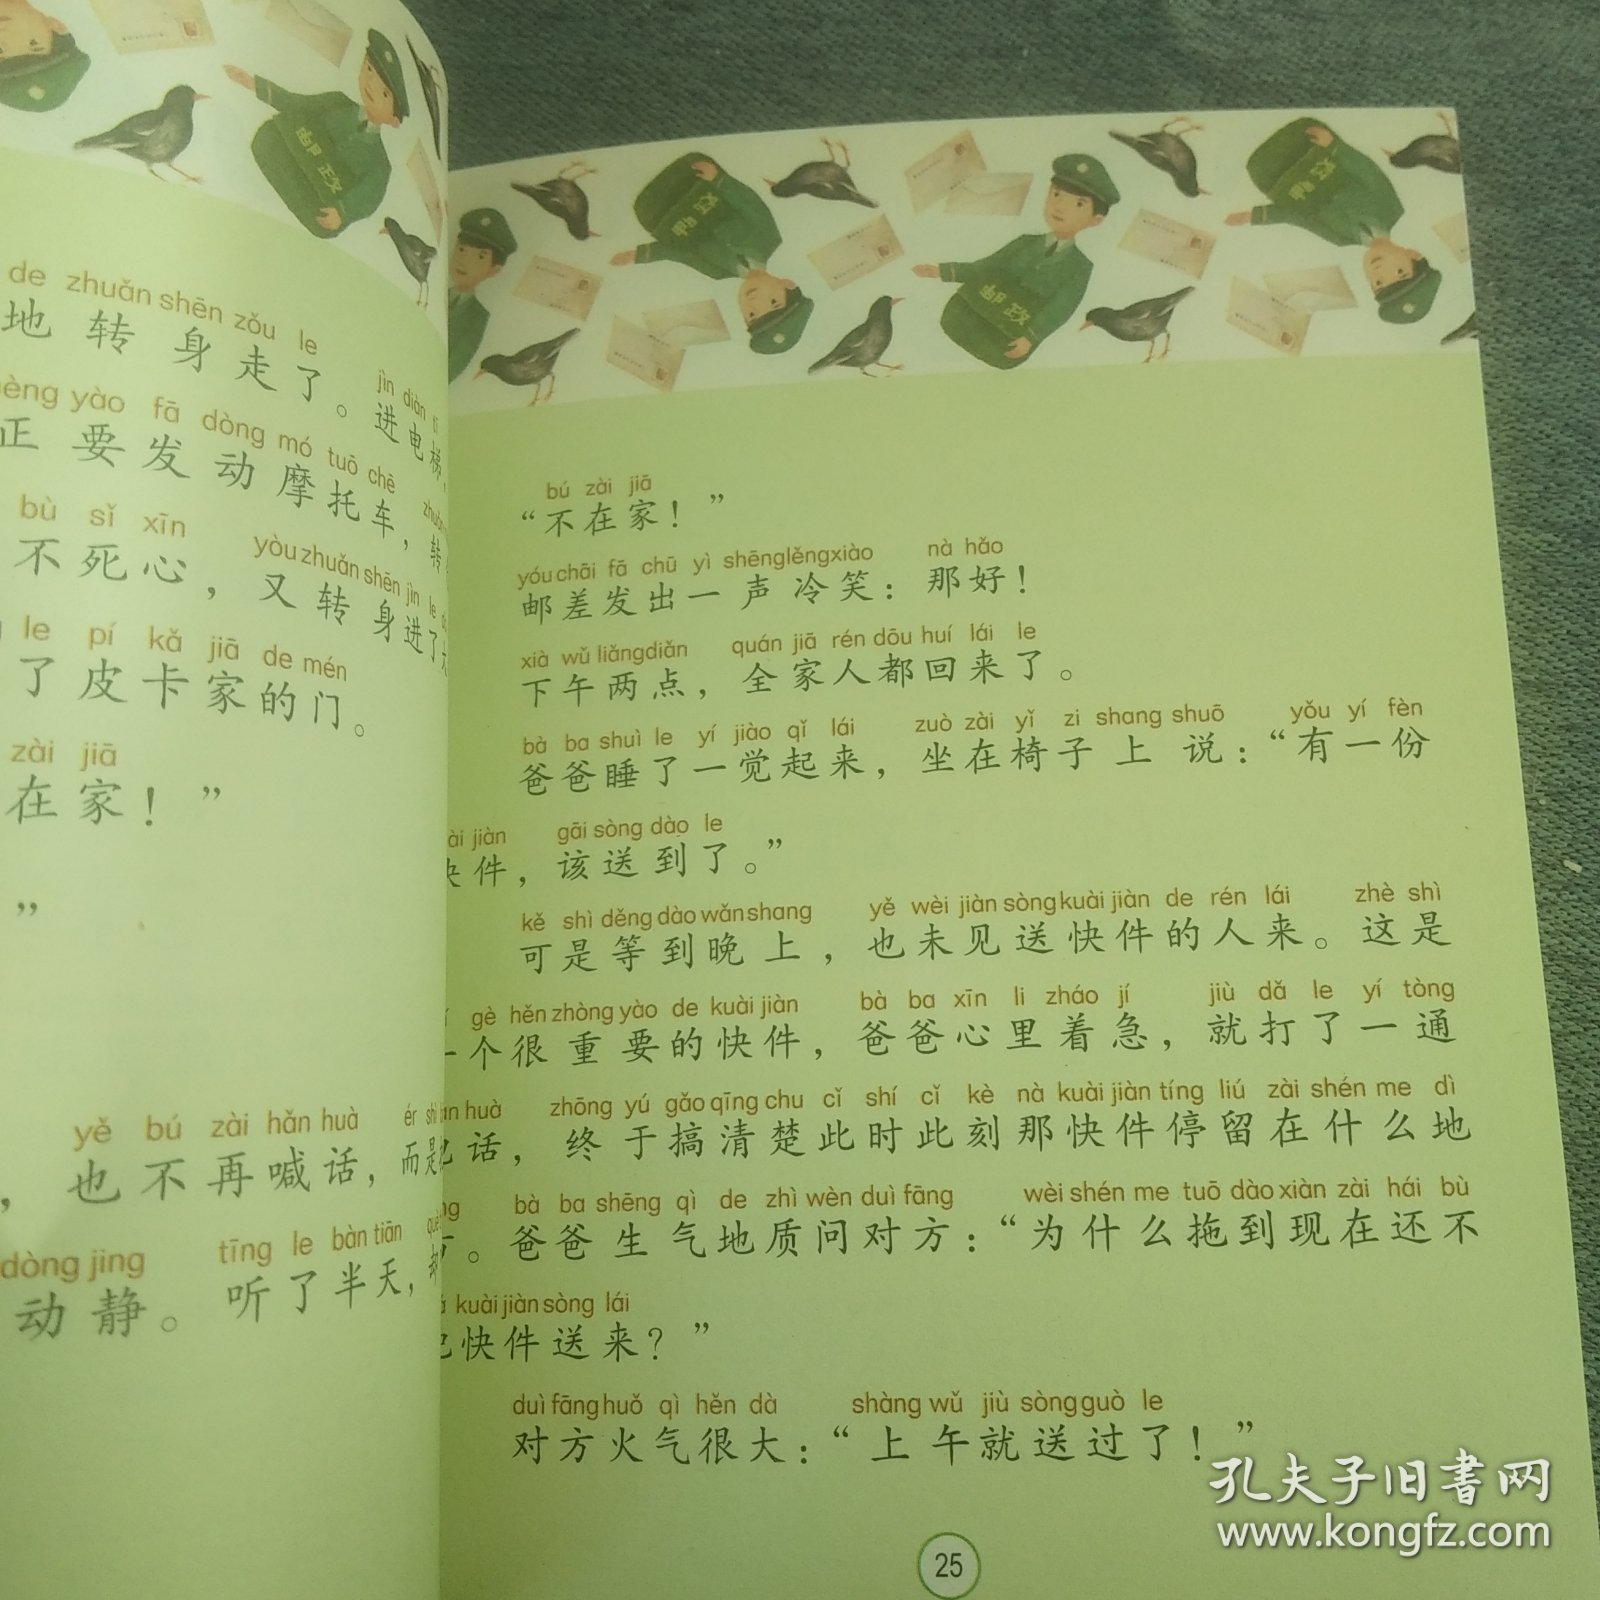 de zhuǎn shēn zǒu le
地转身走了。进电梯，
jìn diàn tī
yào fā dòng mó tuō chē
正要发动摩托车，转
bù sǐ xīn
yòu zhuǎn shēn jìn le
不死心，又转身进了
le pí kǎ jiā de mén
了皮卡家的门。
zài jiā
在家！”
”
yě bú zài hǎn huà
，也不再喊话，而是
dòng jing
tīng le bàn tiān
动静。听了半天，
bú zài jiā
“不在家！”
yóu chāi fā chū yì shēng lěng xiào nà hǎo
邮差发出一声冷笑：那好！
xià wǔ liǎng diǎn quán jiā rén dōu huí lái le
下午两点，全家人都回来了。
bà ba shuì le yí jiào qǐ lái zuò zài yǐ zi shang shuō yǒu yí fèn
爸爸睡了一觉起来，坐在椅子上说：“有一份
jiàn gāi sòng dào le
快件，该送到了。”
kě shì děng dào wǎn shang yě wèi jiàn sòng kuài jiàn de rén lái zhè shì
可是等到晚上，也未见送快件的人来。这是
gè hěn zhòng yào de kuài jiàn bà ba xīn li zháo jí jiù dǎ le yí tòng
一个很重要的快件，爸爸心里着急，就打了一通
huà zhōng yú gǎo qīng chu cǐ shí cǐ kè nà kuài jiàn tíng liú zài shén me dì
话，终于搞清楚此时此刻那快件停留在什么地
bà ba shēng qì de zhì wèn duì fāng wèi shén me tuō dào xiàn zài hái bù
。爸爸生气地质问对方：“为什么拖到现在还不
kuài jiàn sòng lái
把快件送来？”
duì fāng huǒ qì hěn dà shàng wǔ jiù sòng guò le
对方火气很大：“上午就送过了！”
25
孔夫子旧书网
www.kongfz.com